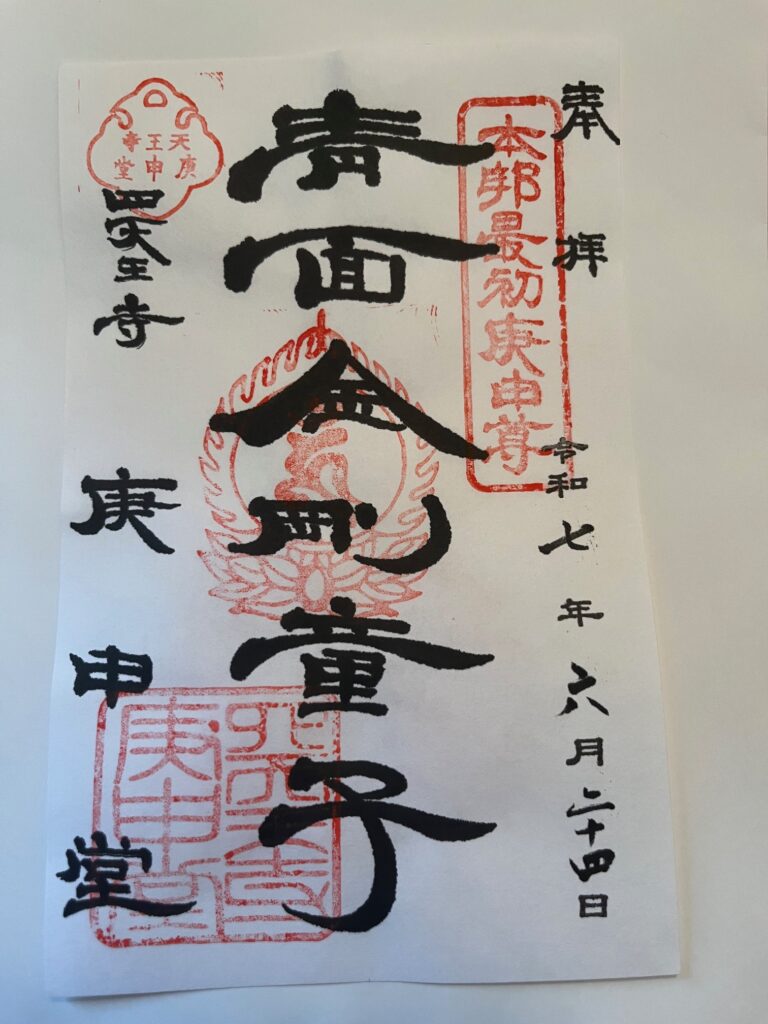 奉拝
令和七年六月二十四日
本邦最初庚申尊
青面金剛童子
天王寺
庚申堂
四天王寺
庚申堂
四天王寺
庚申堂